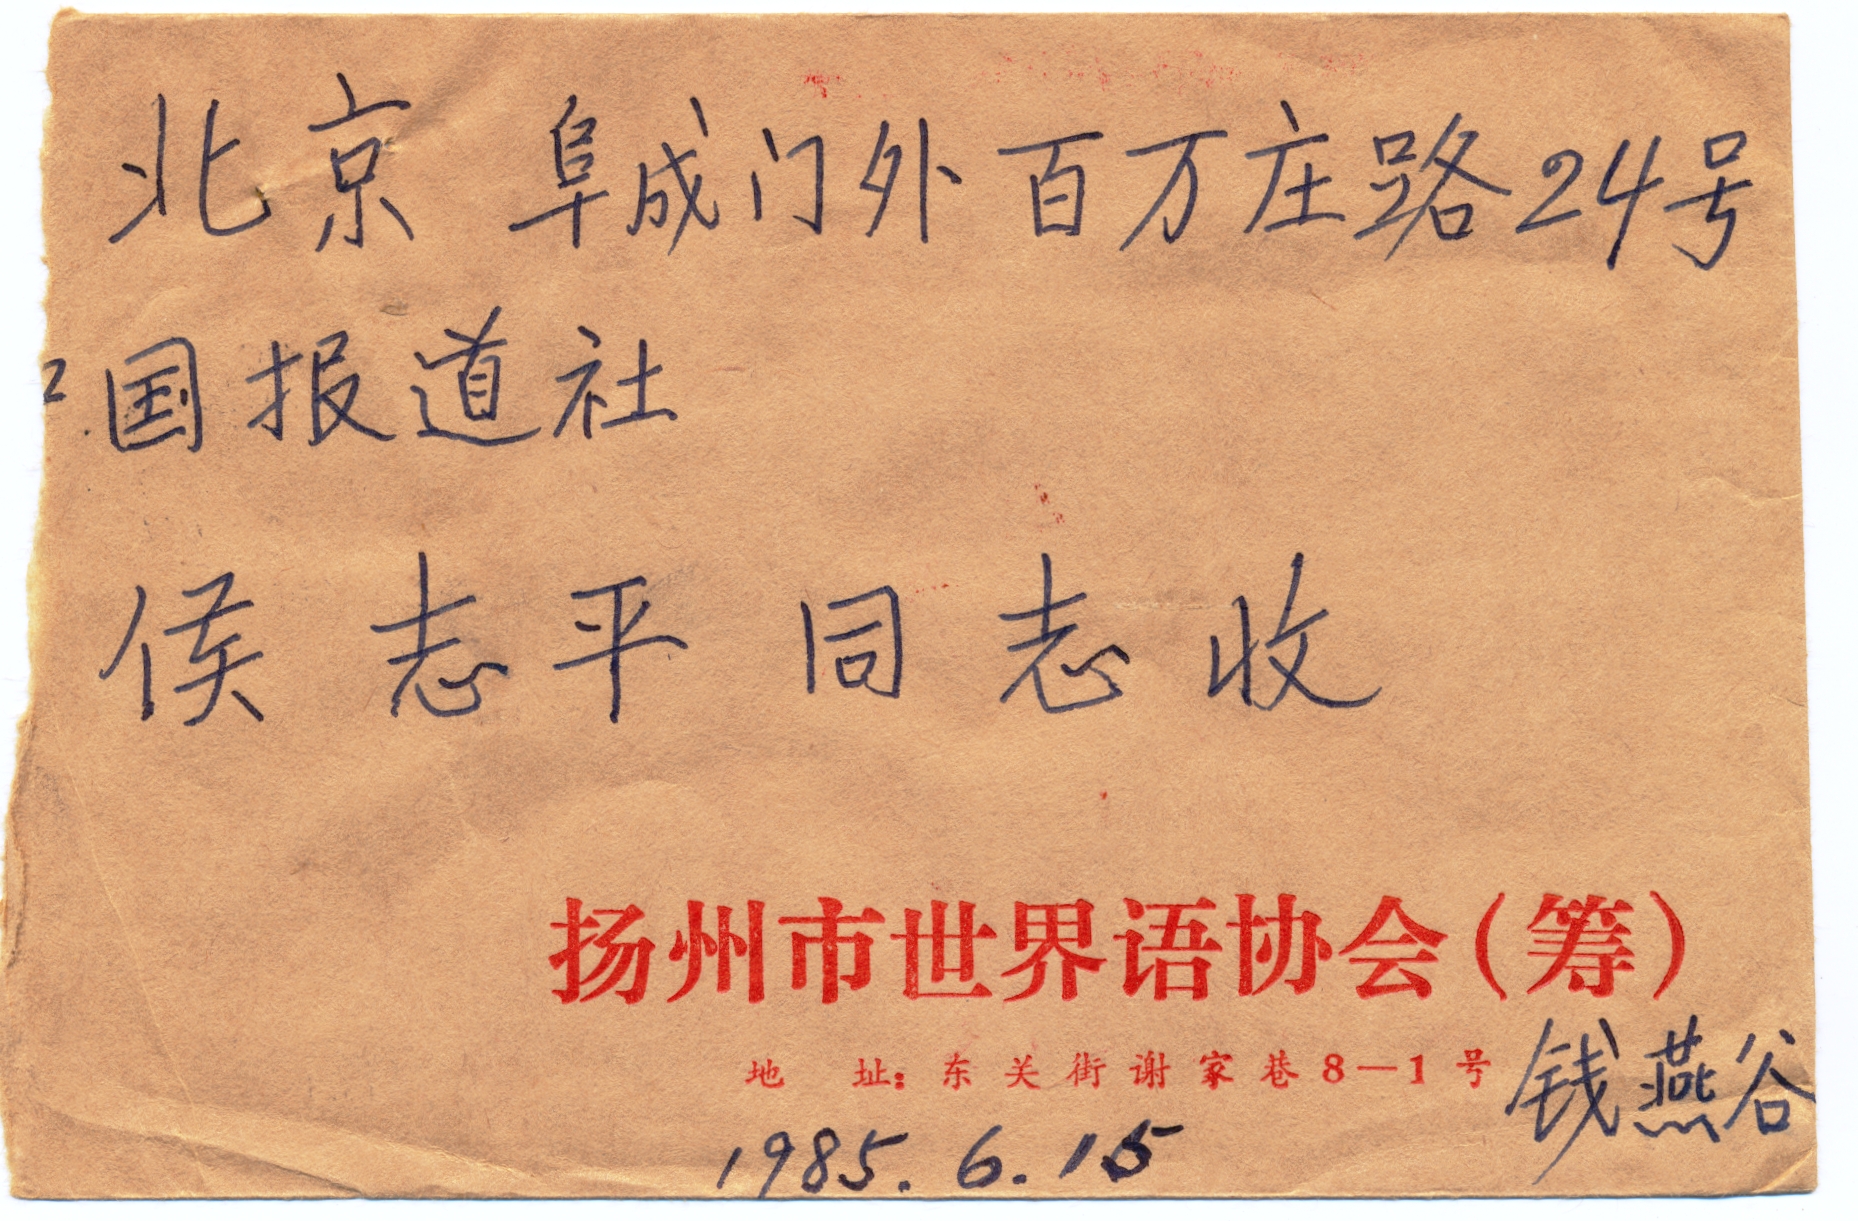 北京 阜成门外百万庄路24号
国报道社
侯志平同志收
扬州市世界语协会(筹)
地 址:东关街谢家巷8—1号
钱燕谷
1985.6.15